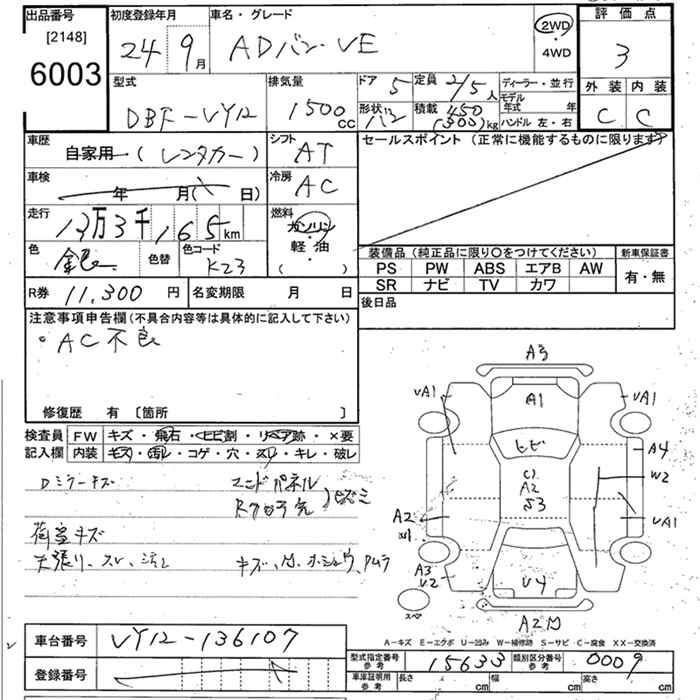 出品番号
[2148]
6003
初度登録年月
24 9月
車名・グレード
ADバン VE
2WD
・
4WD
評価点
3
外装 内装
C C
型式
DBF-VY12
排気量
1500cc
ドア 5
定員 2/5人
形状 バン
積載 450 (300)kg
ディーラー・並行
モデル年式 年
ハンドル 左・右
車歴
自家用 (レンタカー)
シフト
AT
車検
年 月( 日)
冷房
AC
走行
13万3千165km
燃料
ガソリン
・
軽・油
( )
色
銀
色替
色コード
K23
セールスポイント(正常に機能するものに限ります)
装備品(純正品に限り○をつけてください)
PS PW ABS エアB AW
SR ナビ TV カワ
新車保証書
有・無
R券 11,300円
名変期限 月 日
後日品
注意事項申告欄(不具合内容等は具体的に記入して下さい)
・AC不良
修復歴 有 〔箇所 〕
検査員記入欄
FW キズ・飛石・ヒビ割・リペア跡・×要
内装 キズ・汚レ・コゲ・穴・スレ・キレ・破レ
Dミラーキズ
荷室キズ
天張り、スレ、汚レ
A3
vA1 A1 vA1
ヒビ
A4
W2
A2
S3
A2
vA1
A3
v2
v4
スペア
A2
A-キズ E-エクボ U-凹み W-補修跡 S-サビ C-腐食 XX-交換済
車台番号 VY12-136107
登録番号
型式指定番号 参考 15633
類別区分番号 参考 0009
車庫証明用 参考 長さ cm 幅 cm 高さ cm